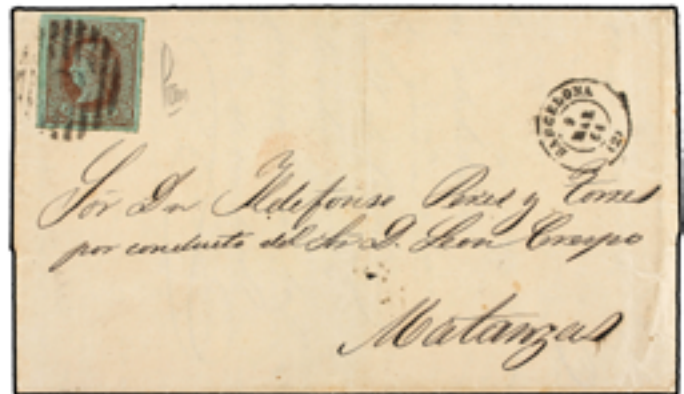 BARCELONA
9
MAR
64
(2)
Sor Dn Ildefonso Pires y Torres
por conducto del Sr D. Leon Crespo
Matanzas